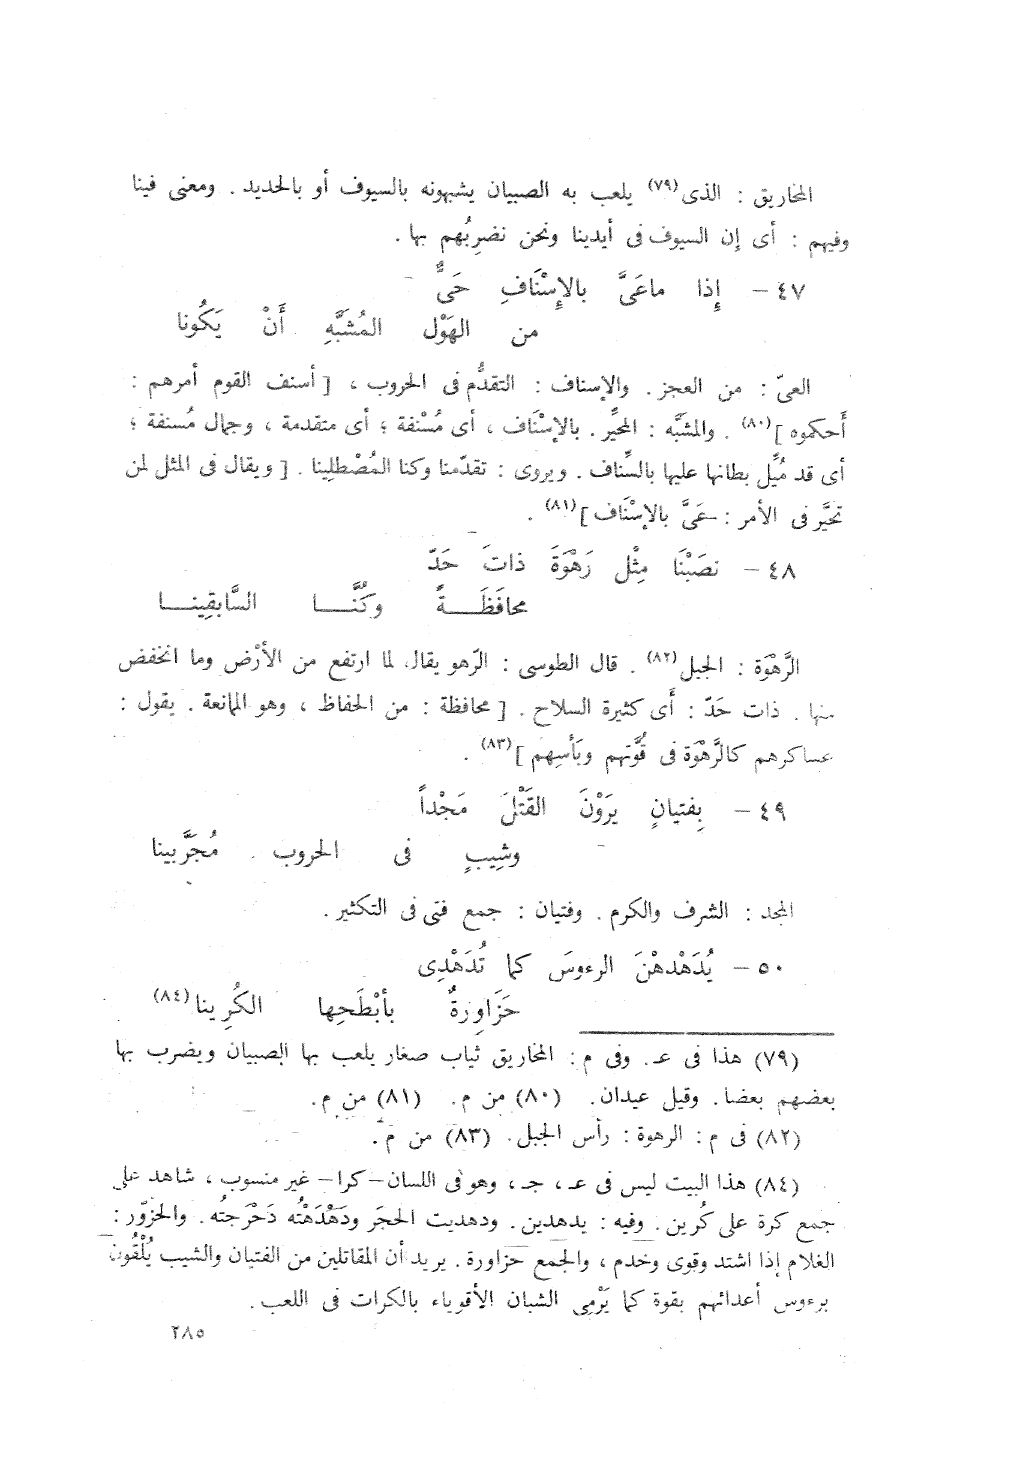 المخاريق : الذى(٧٩) يلعب به الصبيان يشبهونه بالسيوف أو بالحديد . ومعنى فينا
وفيهم : أى إن السيوف فى أيدينا ونحن نضرِبُهم بها .
٤٧ – إِذا ماعَىَّ بالإِسْنَافِ حَىٌّ
من الهَوْل المُشَبَّهِ أَنْ يَكُونا
العىّ : من العجز . والإسناف : التقدُّم فى الحروب ، [ أسنف القوم أمرهم :
أَحكموه ](٨٠) . والمشَبَّه : المحيِّر . بالإسْنَاف ، أى مُسْنفة ؛ أى متقدمة ، وجمال مُسنفة ؛
أى قد مُيِّل بطانها عليها بالسِّناف . ويروى : تقدّمنا وكنا المُصْطلِينا . [ ويقال فى المثل لمن
تحيَّر فى الأمر : عَىَّ بالإسْنَاف ](٨١) .
٤٨ – نصَبْنَا مِثْل رَهْوَةَ ذاتَ حَدّ
محافَظَـــــةً وكُنَّـــــا السَّابقِينـــا
الرَّهْوَة : الجبل(٨٢) . قال الطوسى : الرّهو يقال لما ارتفع من الأرْض وما انخفض
منها . ذات حَدّ : أَى كثيرة السلاح . [ محافظة : من الحفاظ ، وهو الممانعة . يقول :
عساكرهم كالرَّهْوَة فى قُوَّتهم وبَأسِهم ](٨٣) .
٤٩ – بِفتيانٍ يَرَوْنَ القَتْلَ مَجْداً
وشِيبٍ فى الحروب مُجَرَّبينا
المجد : الشرف والكرم . وفتيان : جمع فتى فى التكثير .
٥٠ – يُدَهْدهْنَ الرءوسَ كما تُدَهْدِى
حَزَاوِرَةٌ بأبْطَحِها الكُرِينا(٨٤)
(٧٩) هذا فى عـ . وفى م : المخاريق ثياب صغار يلعب بها الصبيان ويضرب بها
بعضهم بعضا . وقيل عيدان . (٨٠) من م . (٨١) من م .
(٨٢) فى م : الرهوة : رأس الجبل . (٨٣) من م .
(٨٤) هذا البيت ليس فى عـ ، جـ ، وهو فى اللسان – كرا – غير منسوب ، شاهد على
جمع كرة على كُرين . وفيه : يدهدين . ودهديت الحجَر ودَهْدَهْتُه دَحْرَجتُه . والحزوّر :
الغلام إذا اشتد وقوى وخدم ، والجمع حزاورة . يريد أن المقاتلين من الفتيان والشيب يُلْقُون
برءوس أعدائهم بقوة كما يَرْمِى الشبان الأقوياء بالكرات فى اللعب .
٢٨٥